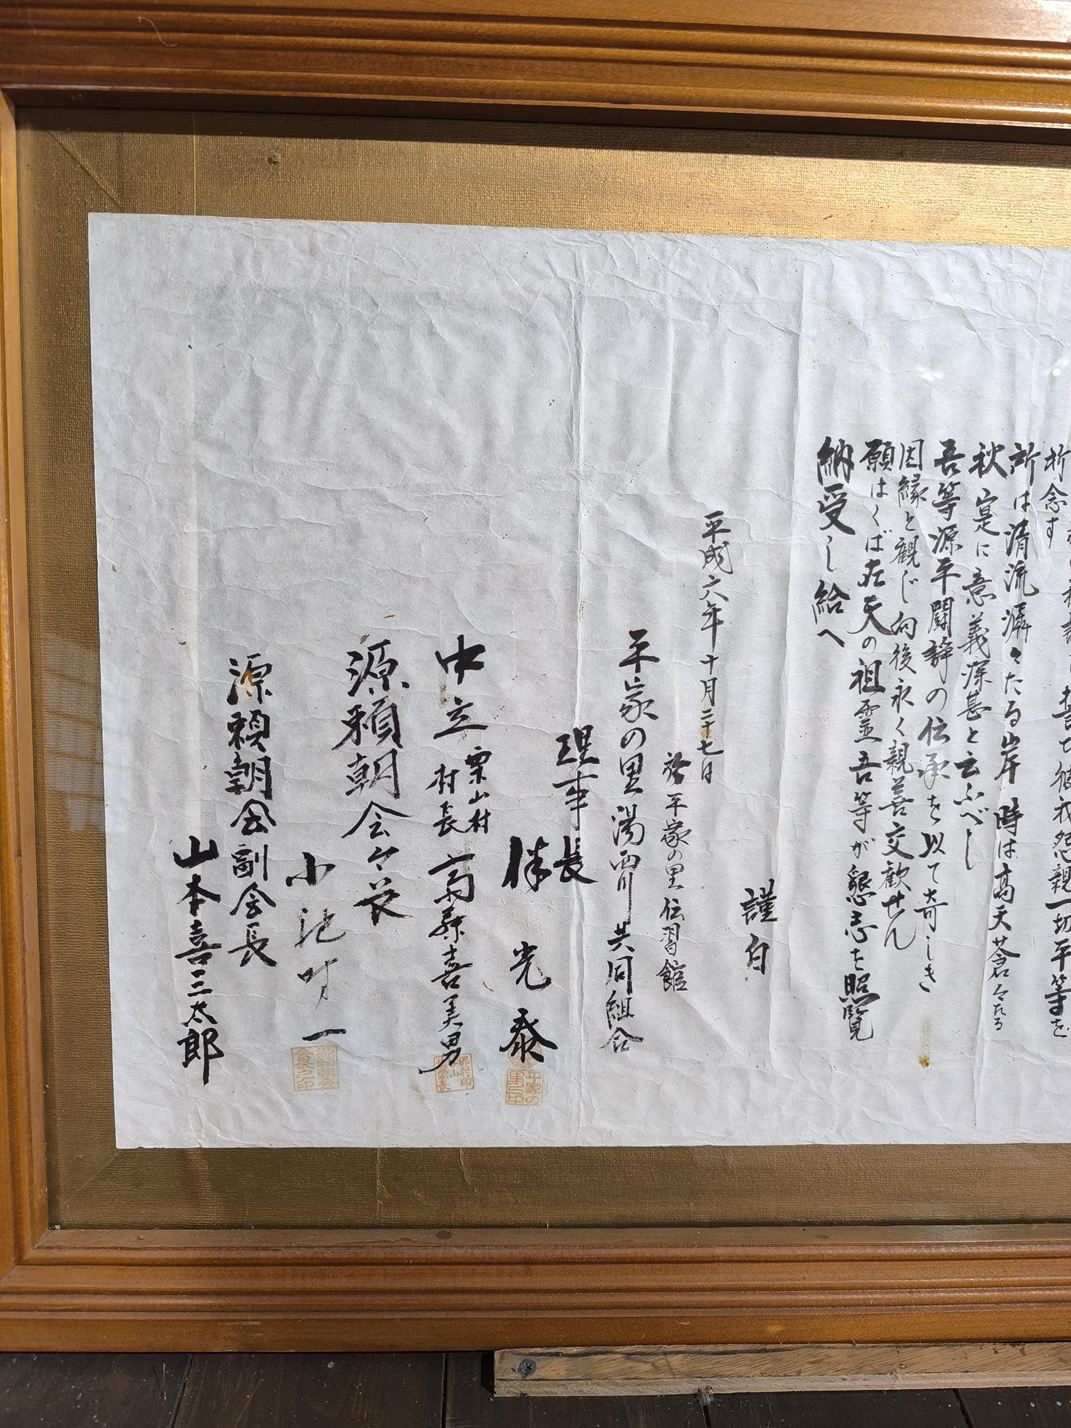 祈念す
所は清流潾々たる岸 時は高天蒼々たる
秋 寔に意義深甚と云ふべし
吾等源平闘諍の伝承を以て奇しき
因縁と観じ向後永く親善交歓せん
願はくば在天の祖霊吾等が懇志を照覧
納受し給へ
謹白
平成六年十月二十七日
於 平家の里伝習館
平家の里湯西川共同組合
理事長
伴 光泰
中立 栗山村
村長 斎藤喜美男
源頼朝会々長
小池 一
源頼朝会副会長
山本喜三太郎